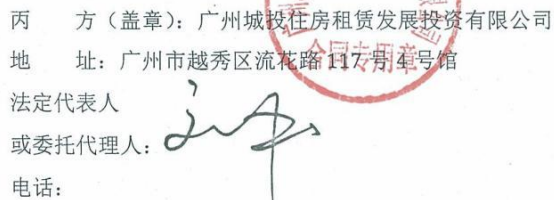 丙　　方（盖章）：广州城投住房租赁发展投资有限公司
地　　址：广州市越秀区流花路 117 号 4 号馆
合同专用章
法定代表人
或委托代理人：
电话：